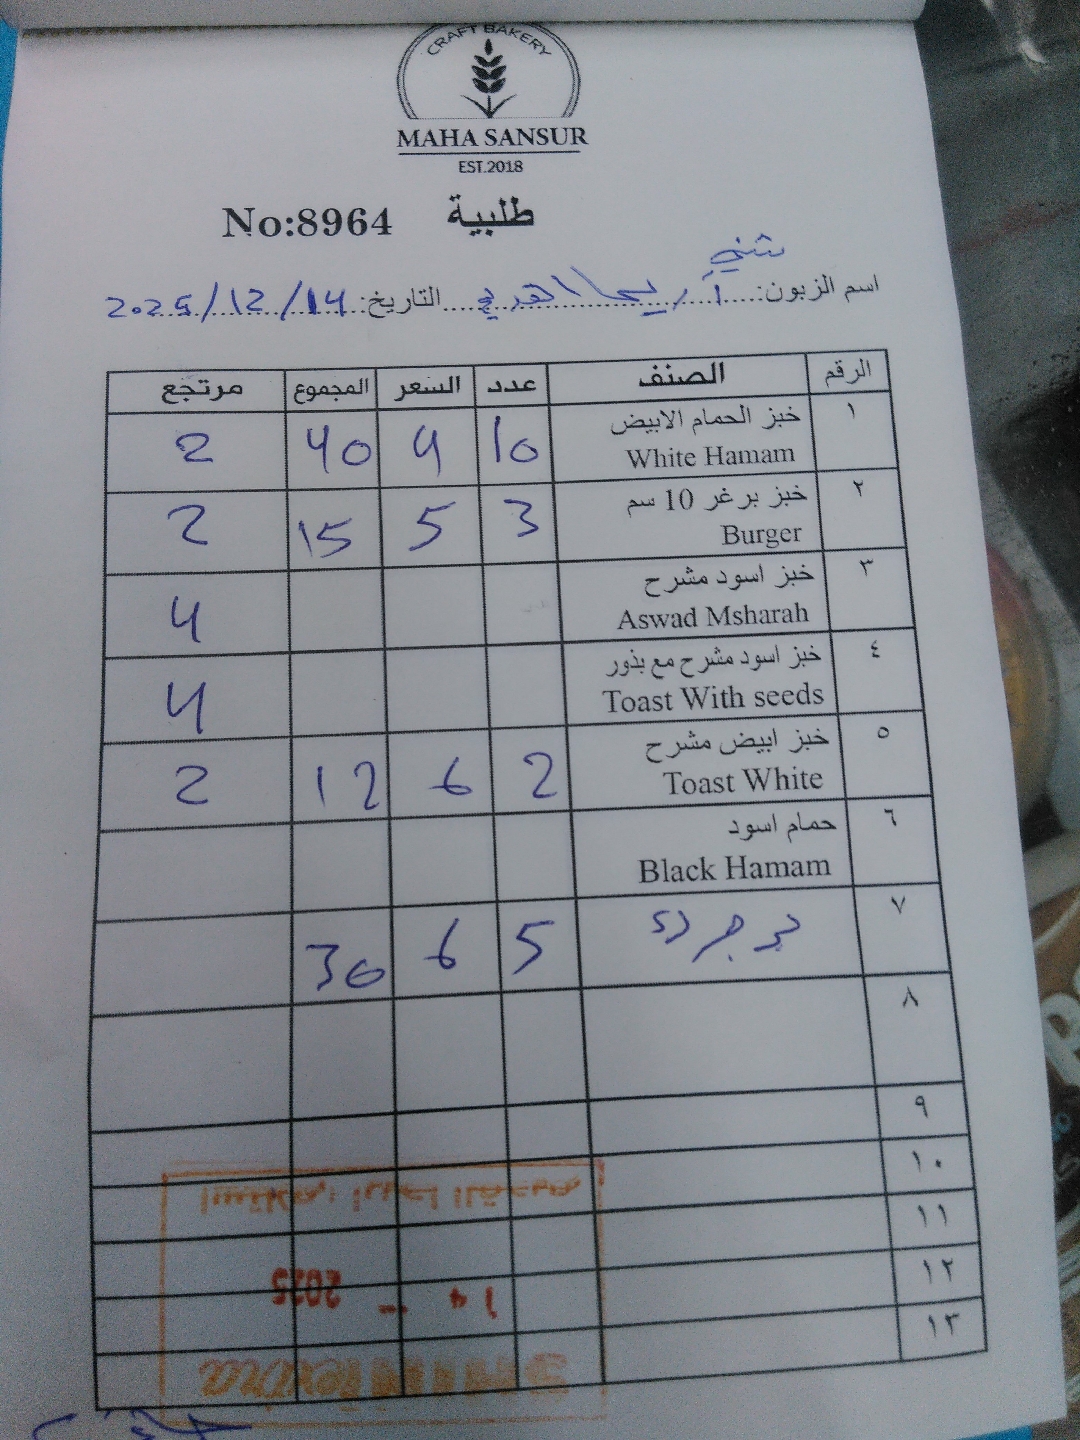 CRAFT BAKERY
MAHA SANSUR
EST.2018
No:8964 طلبية
اسم الزبون: أريحا التاريخ: 2025/12/14
الرقم الصنف عدد السعر المجموع مرتجع
١ خبز الحمام الابيض 10 4 40 2
White Hamam
٢ خبز برغر 10 سم 3 5 15 2
Burger
٣ خبز اسود مشرح 4
Aswad Msharah
٤ خبز اسود مشرح مع بذور 4
Toast With seeds
٥ خبز ابيض مشرح 2 6 12 2
Toast White
٦ حمام اسود
Black Hamam
٧ 5 6 30
٨
٩
١٠
١١
١٢
١٣
14 - 2025